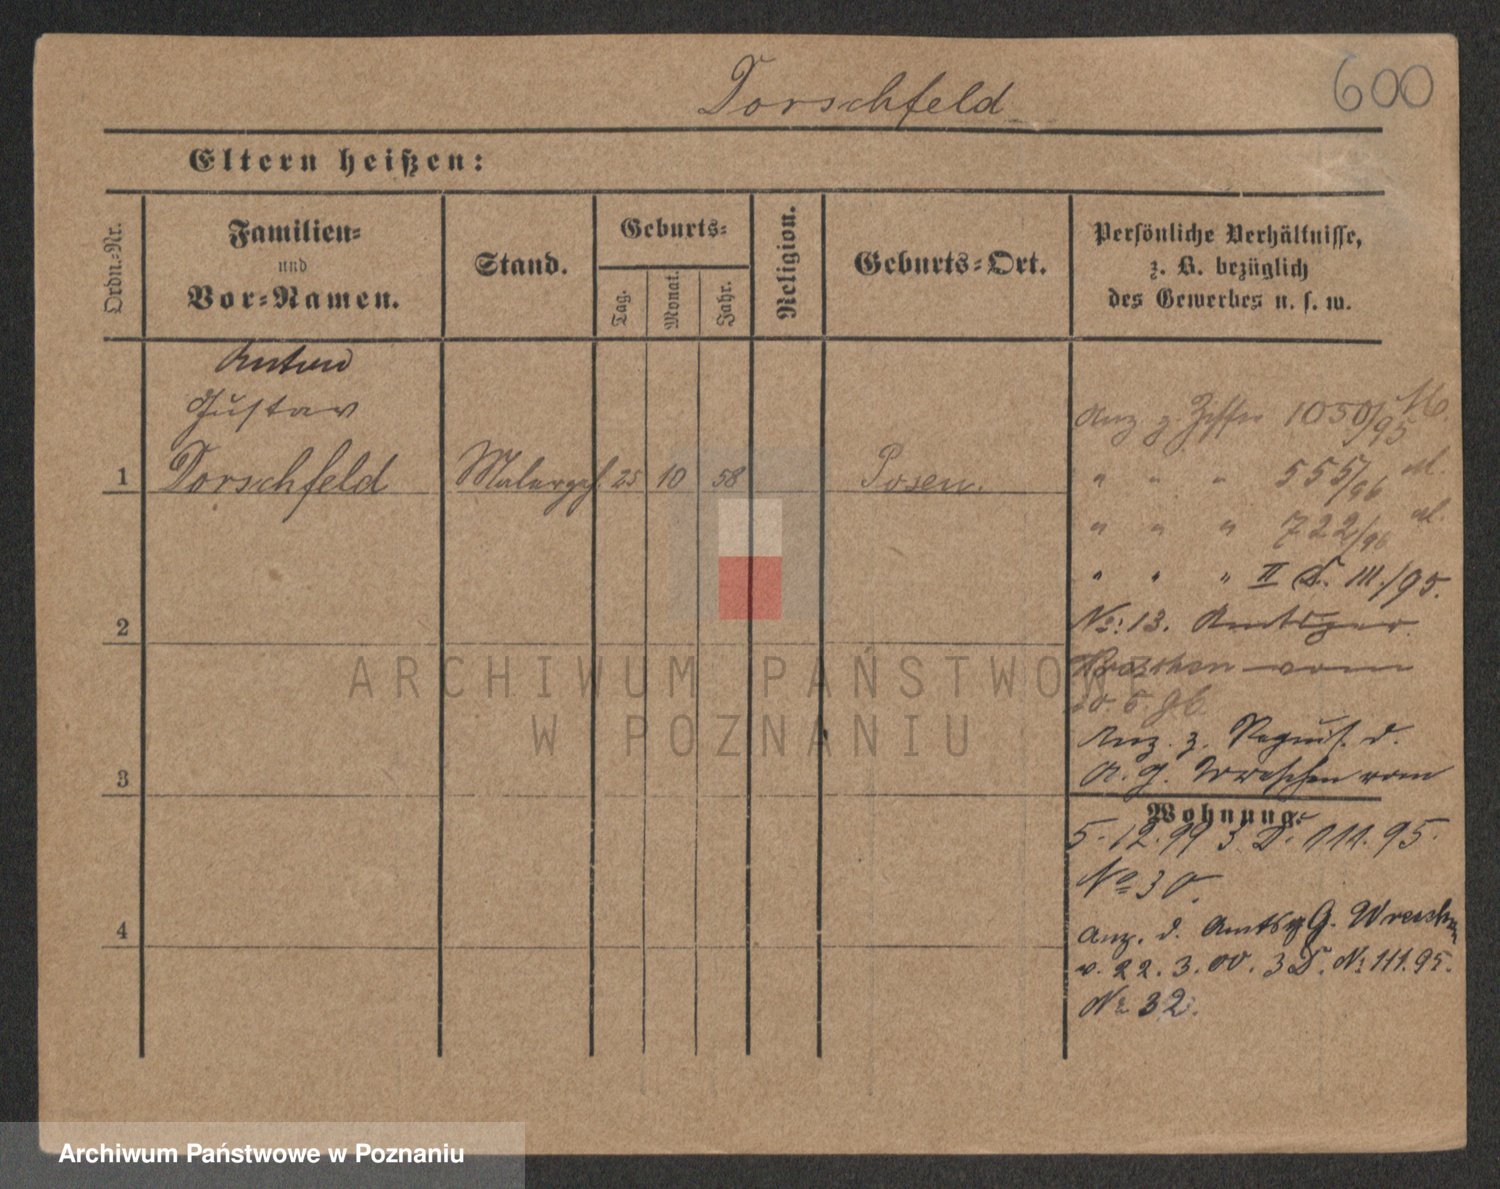 600
Dorschfeld
Eltern heißen:
Ordn.-Nr.
Familien-
und
Vor-Namen.
Stand.
Geburts-
Tag.
Monat.
Jahr.
Religion.
Geburts-Ort.
Persönliche Verhältnisse,
z. B. bezüglich
des Gewerbes u. s. w.
Anton
Gustav
1 Dorschfeld Malergeh. 25 10 58 Posen.
2
3
4
Anz z. 1050/95
" " " 555/96
" " " 722/96
" " " II D. 111./95.
No: 13. Amtsger.
Wreschen vom
6. 96
Anz. z. d.
A. G. Wreschen vom
Wohnung.
5. 12. 99 3 D. 111. 95.
No 30.
Anz. d. Amtsg G. Wreschen
v. 22. 3. 00. 3 D. No 111. 95.
No 32.
ARCHIWUM PAŃSTWOWE
W POZNANIU
Archiwum Państwowe w Poznaniu